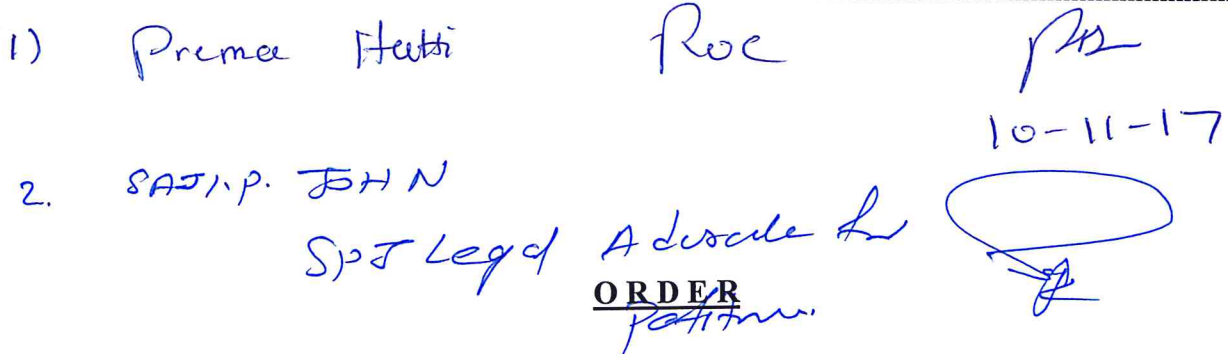 1) Prema Hatti ROC
10-11-17
2. SAJI.P. JOHN
SPJ Legal Advocate for
ORDER
Petitioner.